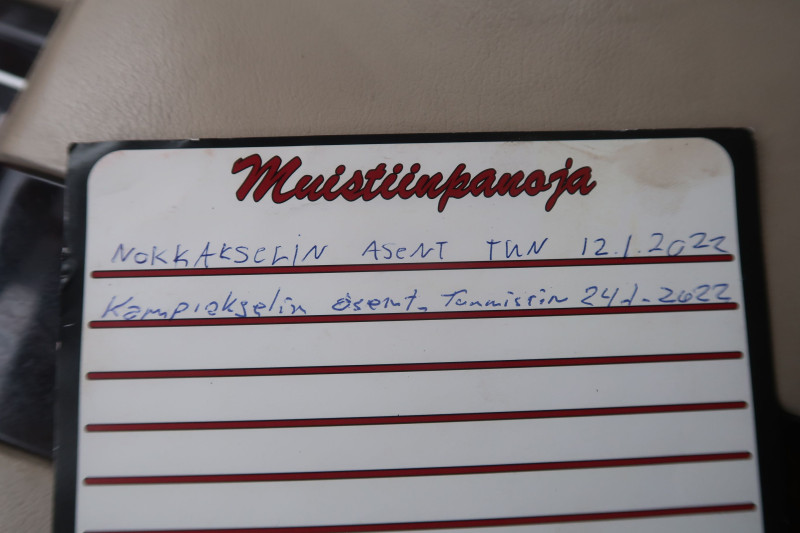 Muistiinpanoja
NOKKAKSELIN ASENT TUN 12.1.2022
Kampiakselin asent. Tunnistin 24.1.2022